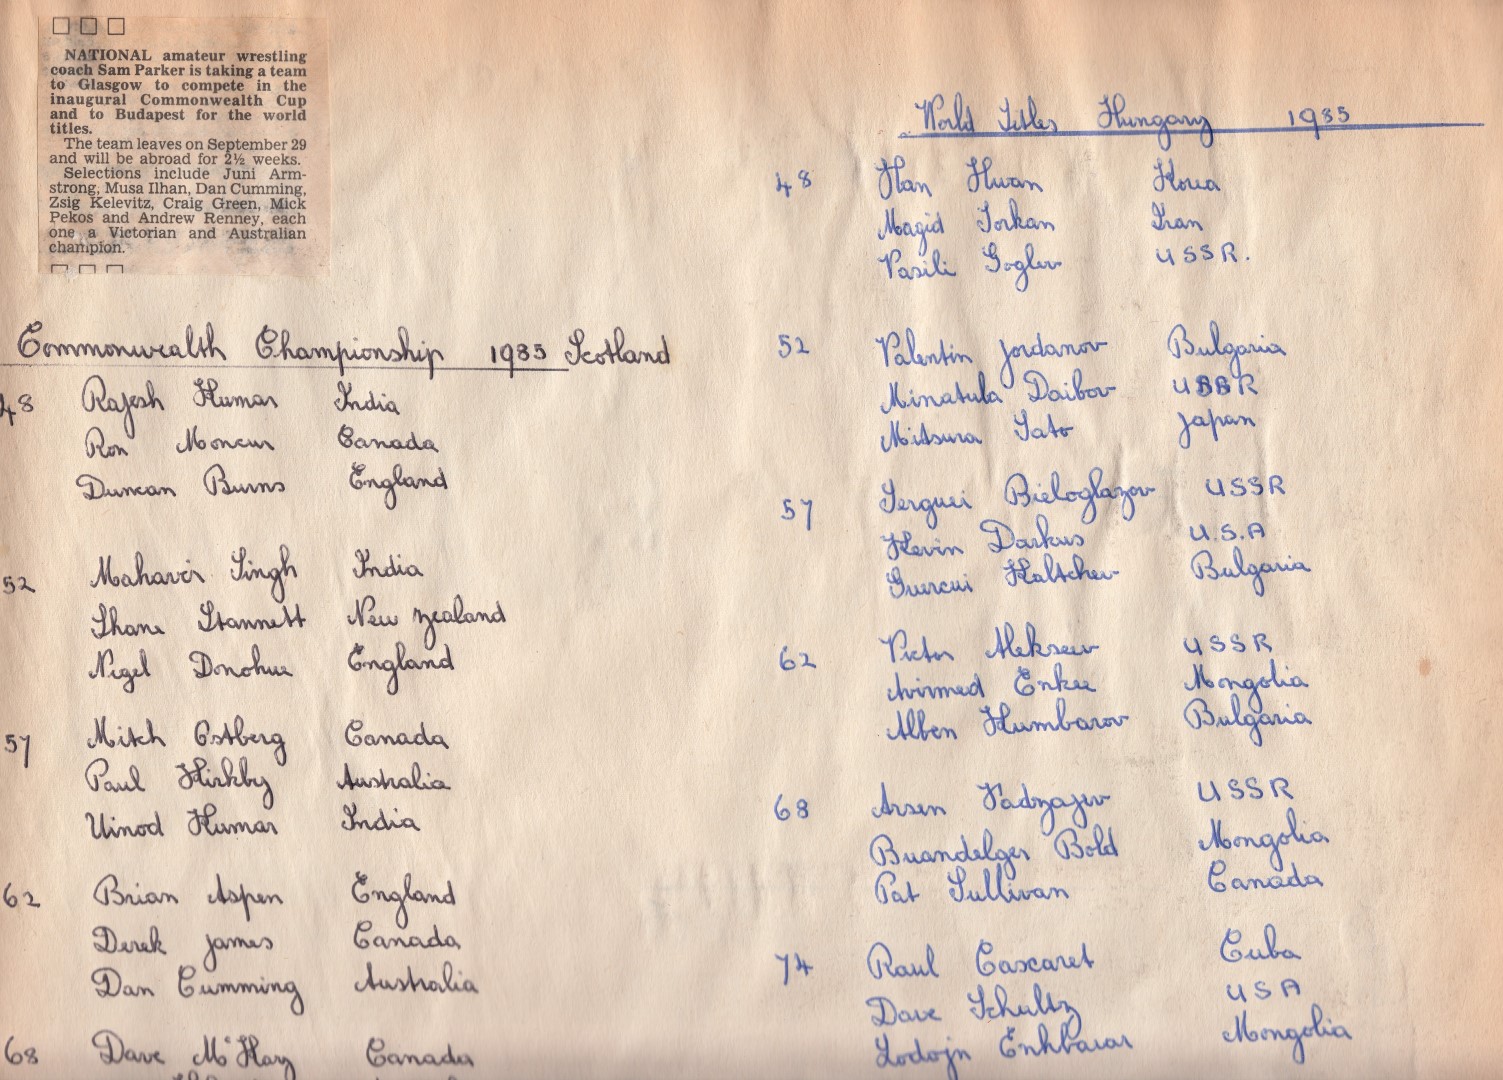 NATIONAL amateur wrestling
coach Sam Parker is taking a team
to Glasgow to compete in the
inaugural Commonwealth Cup
and to Budapest for the world
titles.
The team leaves on September 29
and will be abroad for 2½ weeks.
Selections include Juni Arm-
strong, Musa Ilhan, Dan Cumming,
Zsig Kelevitz, Craig Green, Mick
Pekos and Andrew Renney, each
one a Victorian and Australian
champion.
Commonwealth Championship 1985 Scotland
48 Rajesh Kumar India
Ron Moncur Canada
Duncan Burns England
52 Mahavir Singh India
Shane Stannett New Zealand
Nigel Donohue England
57 Mitch Ostberg Canada
Paul Kirkby Australia
Uinod Kumar India
62 Brian Aspen England
Derek James Canada
Dan Cumming Australia
68 Dave McKay Canada
World Titles Hungary 1985
48 Han Kwan Korea
Magid Torkan Iran
Vasili Goglev USSR.
52 Valentin Jordanov Bulgaria
Minatula Daibov USSR
Mitsura Sato Japan
57 Serguei Bieloglazov USSR
Kevin Darkus U.S.A
Guercui Kaltchev Bulgaria
62 Victor Alekseev USSR
Avirmed Enkee Mongolia
Alben Kumbarov Bulgaria
68 Arsen Fadzajev USSR
Buandelger Bold Mongolia
Pat Sullivan Canada
74 Raul Cascaret Cuba
Dave Schultz USA
Lodojn Enkbaiar Mongolia